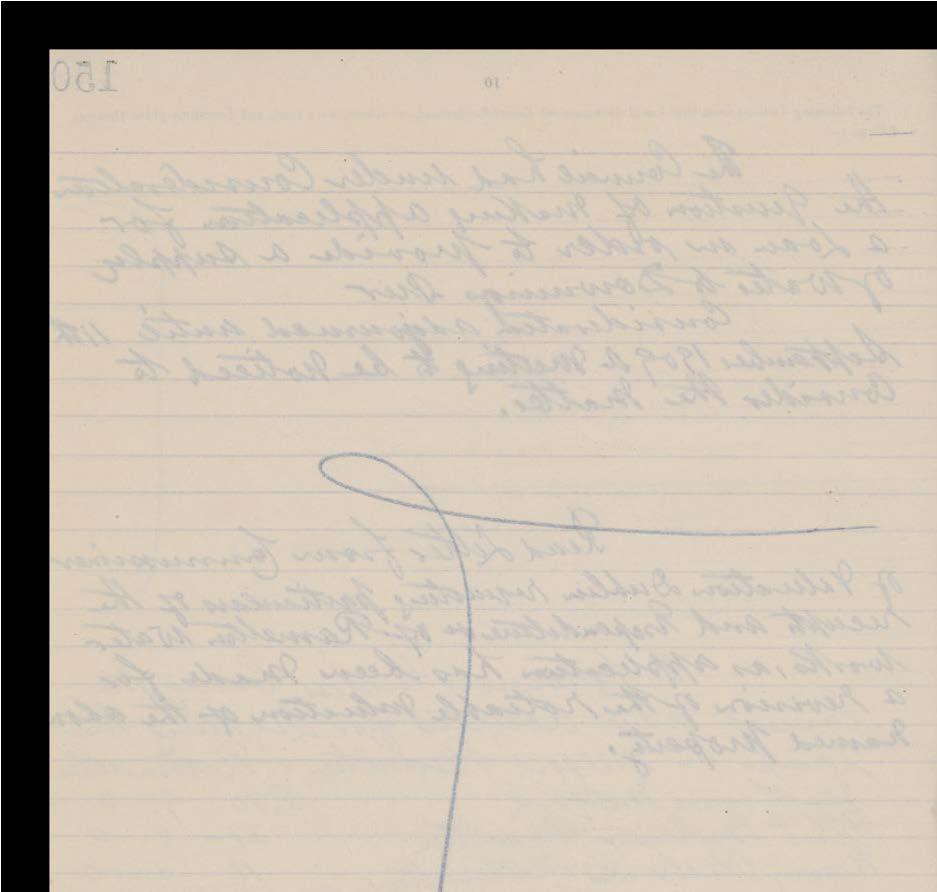 150
10
The Council had under Consideration
the question of making application for
a Loan in order to provide a supply
of Water to Downings Pier
Consideration adjourned until 11th
September 1909 a meeting to be noticed to
Consider the matter.
Read Letter from Commissioner
of Valuation Dublin requesting particulars of the
receipts and Expenditure of Ramelton Water
works, as application has been made for
a revision of the rateable valuation of the above
named property.